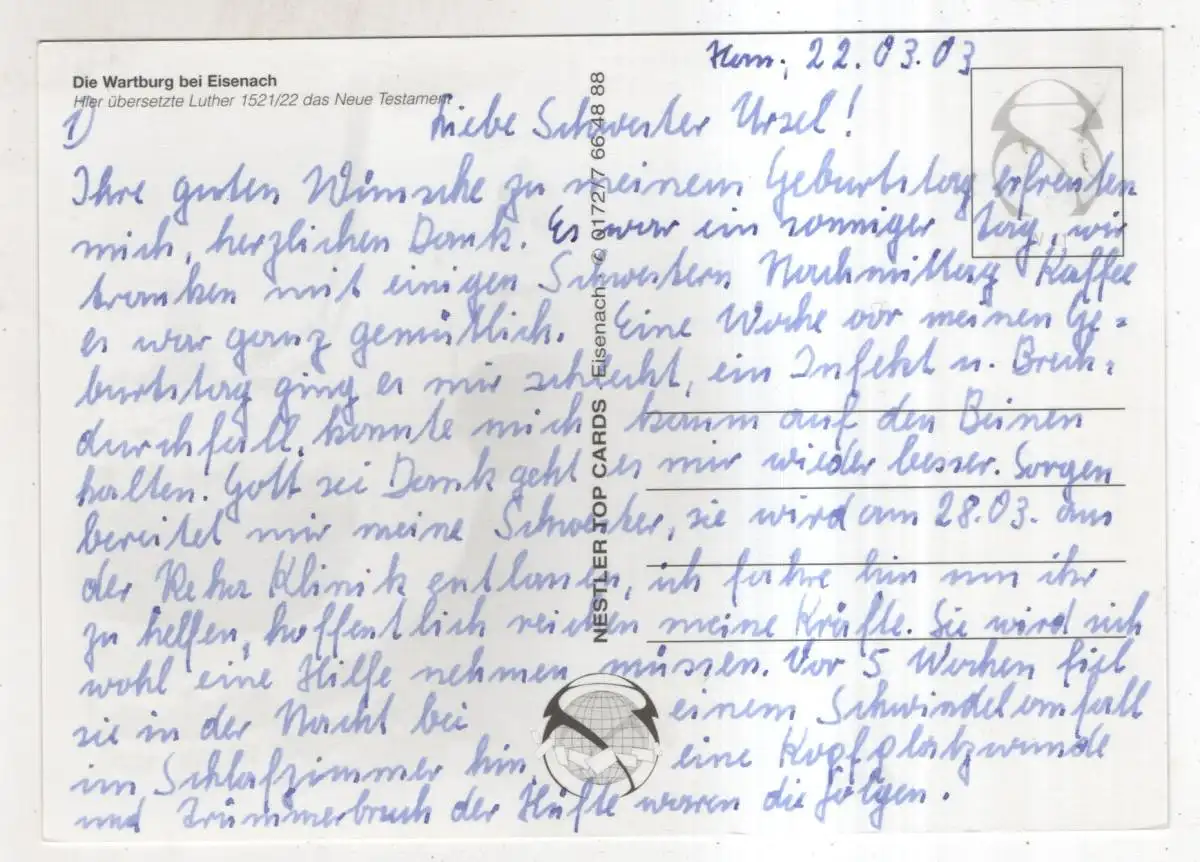 Ham; 22.03.03
Die Wartburg bei Eisenach
Hier übersetzte Luther 1521/22 das Neue Testament
1)
Liebe Schwester Ursel!
Ihre guten Wünsche zu meinem Geburtstag erfreuten
mich, herzlichen Dank. Es war ein sonniger Tag, wir
tranken mit einigen Schwestern Nachmittag Kaffee
es war ganz gemütlich. Eine Woche vor meinen Ge=
burtstag ging es mir schlecht, ein Infekt u. Brech=
durchfall, konnte mich kaum auf den Beinen
halten. Gott sei Dank geht es mir wieder besser. Sorgen
bereitet mir meine Schwester, sie wird am 28.03. aus
der Reha Klinik entlassen, ich fahre hin um ihr
zu helfen, hoffentlich reichen meine Kräfte. Sie wird sich
wohl eine Hilfe nehmen müssen. Vor 5 Wochen fiel
sie in der Nacht bei einem Schwindelanfall
im Schlafzimmer hin, eine Kopfplatzwunde
und Trümmerbruch der Hüfte waren die Folgen.
NESTLER TOP CARDS · Eisenach · ✆ 0172/7 66 48 88